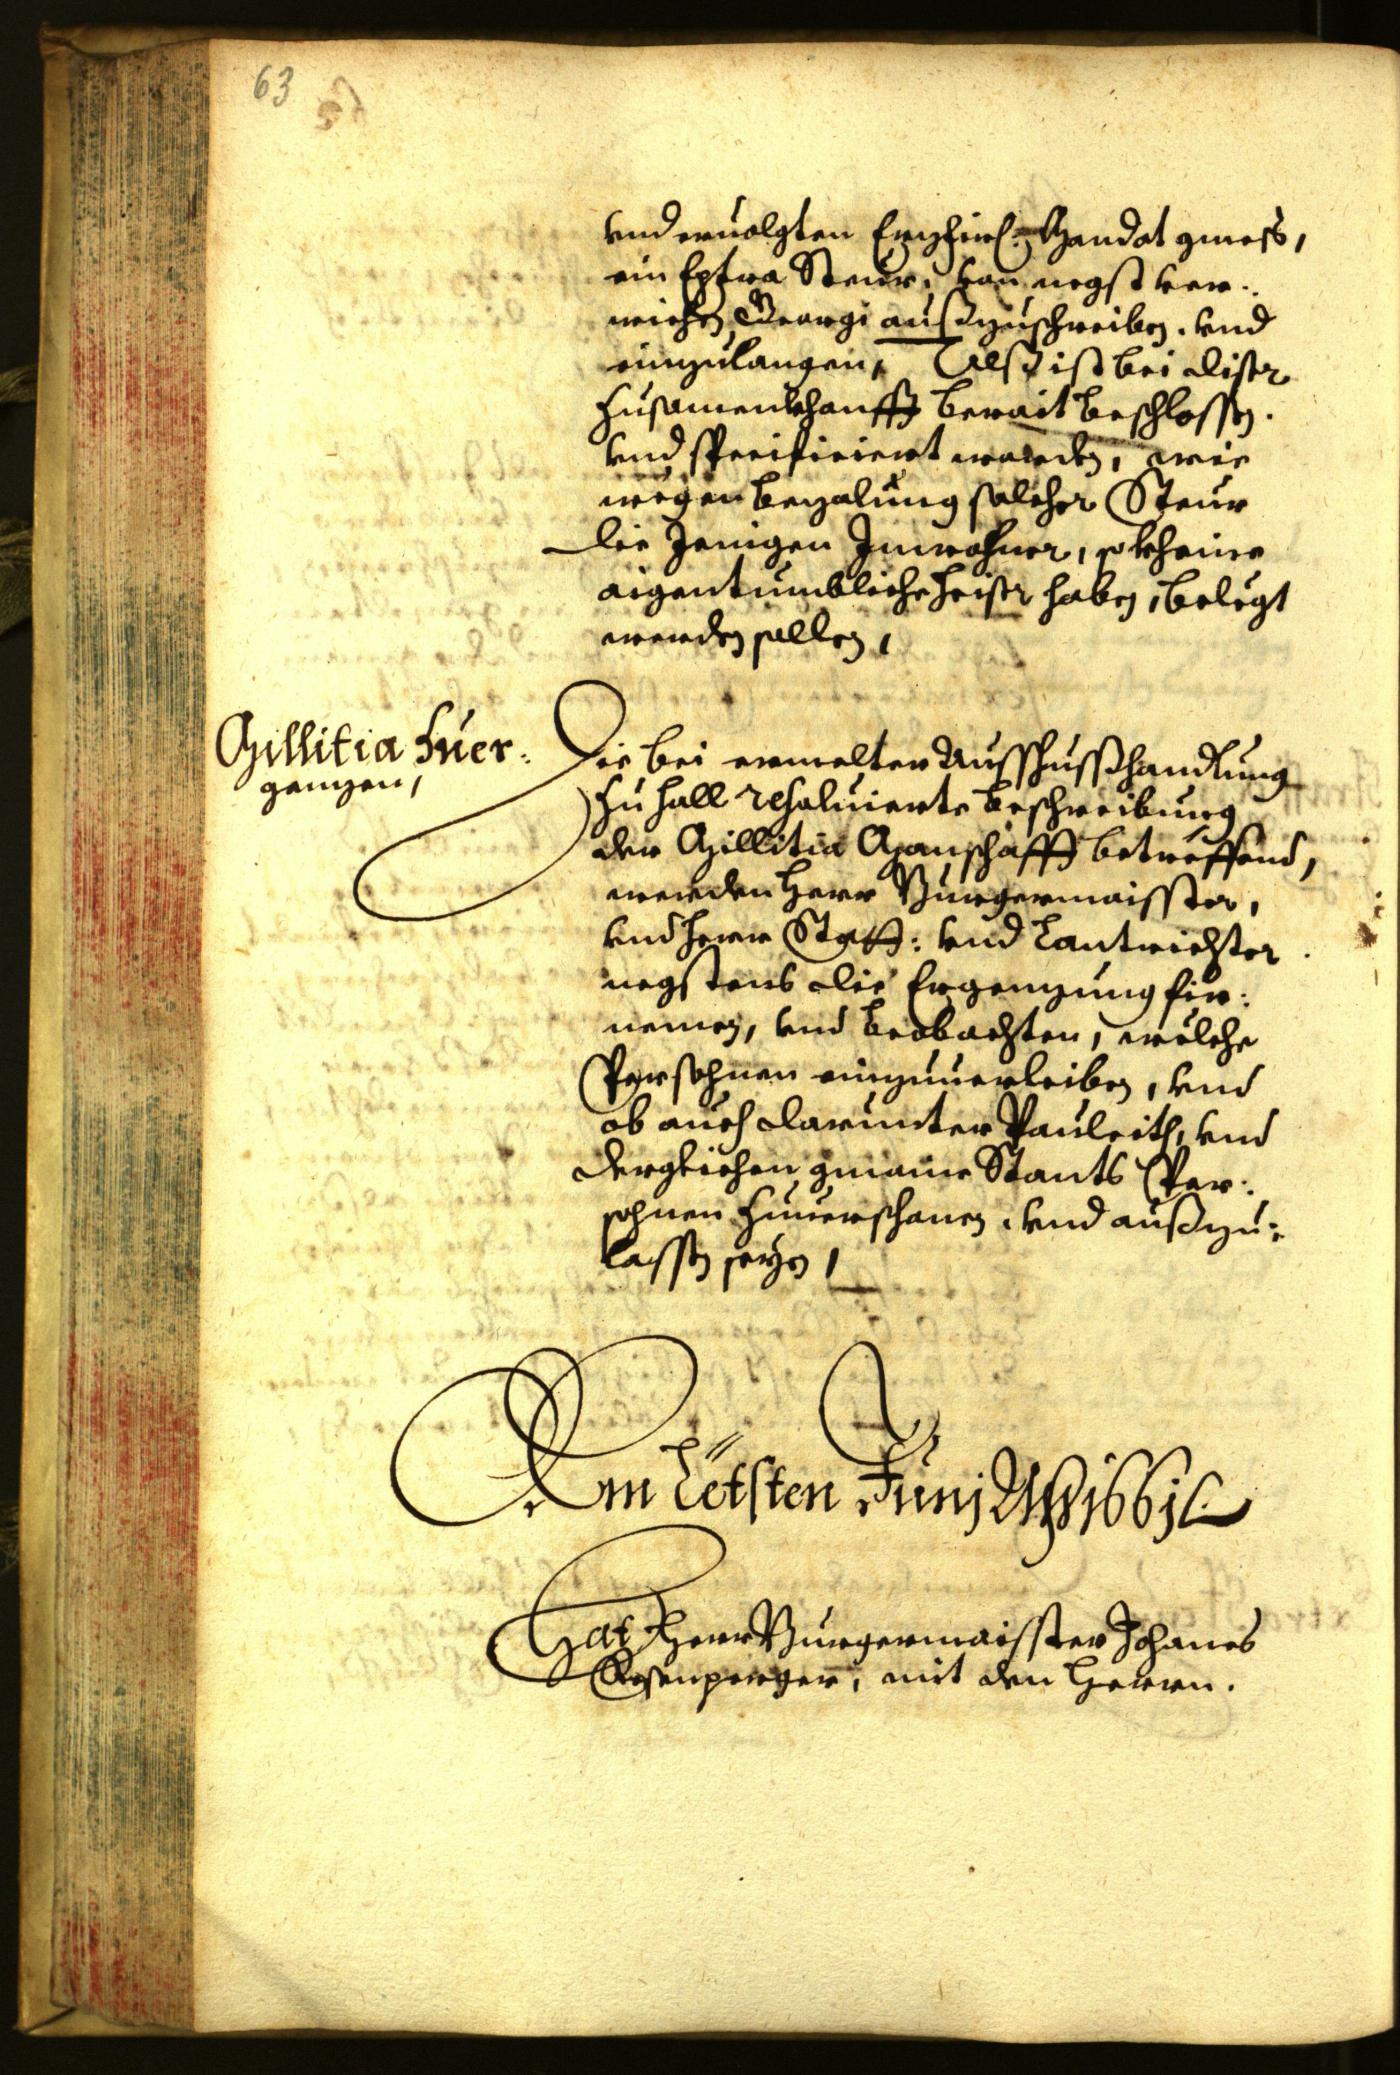 63
vnd eruolgten Erzfirs: Mandat gmess,
ein Extra Steur, von negst ver:
wichen Georgi außzuschreiben. vnd
einzulangen, Alß ist bei diser
Zusamenkhonfft berait beschlossen.
vnd specificiert worden, wie
wegen bezalung solcher Steur
die Jenigen Inwohner, so kheine
aigentumbliche heiser haben, belegt
werden sollen,
Millitia Zuer:
genzen,
Die bei ermelter Ausschußhandlung
zu Hall resoluierte beschreibung
der Millitia Manschafft betreffend,
werden Herr Burgermaisster,
vnd herr Statt: vnd Lantrichter
negstens die Ergenzung fir:
nemen, vnd beobachten, welche
Persohnen einzuuerleiben, vnd
ob auch darunter Pauleith, vnd
dergleichen gmaine Stants Per:
sohnen zuuerschonen. vnd außzu:
lassen seyen,
Am Letsten Junj Ao 1661
Hat Herr Burgermaisster Johanes
Rosenperger, mit den Herrn.